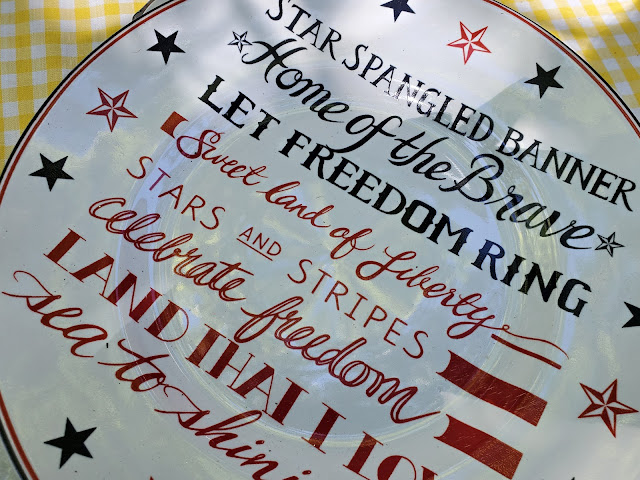 STAR SPANGLED BANNER
Home of the Brave
LET FREEDOM RING
Sweet land of Liberty
STARS AND STRIPES
celebrate freedom
LAND THAT I LO
sea to shini